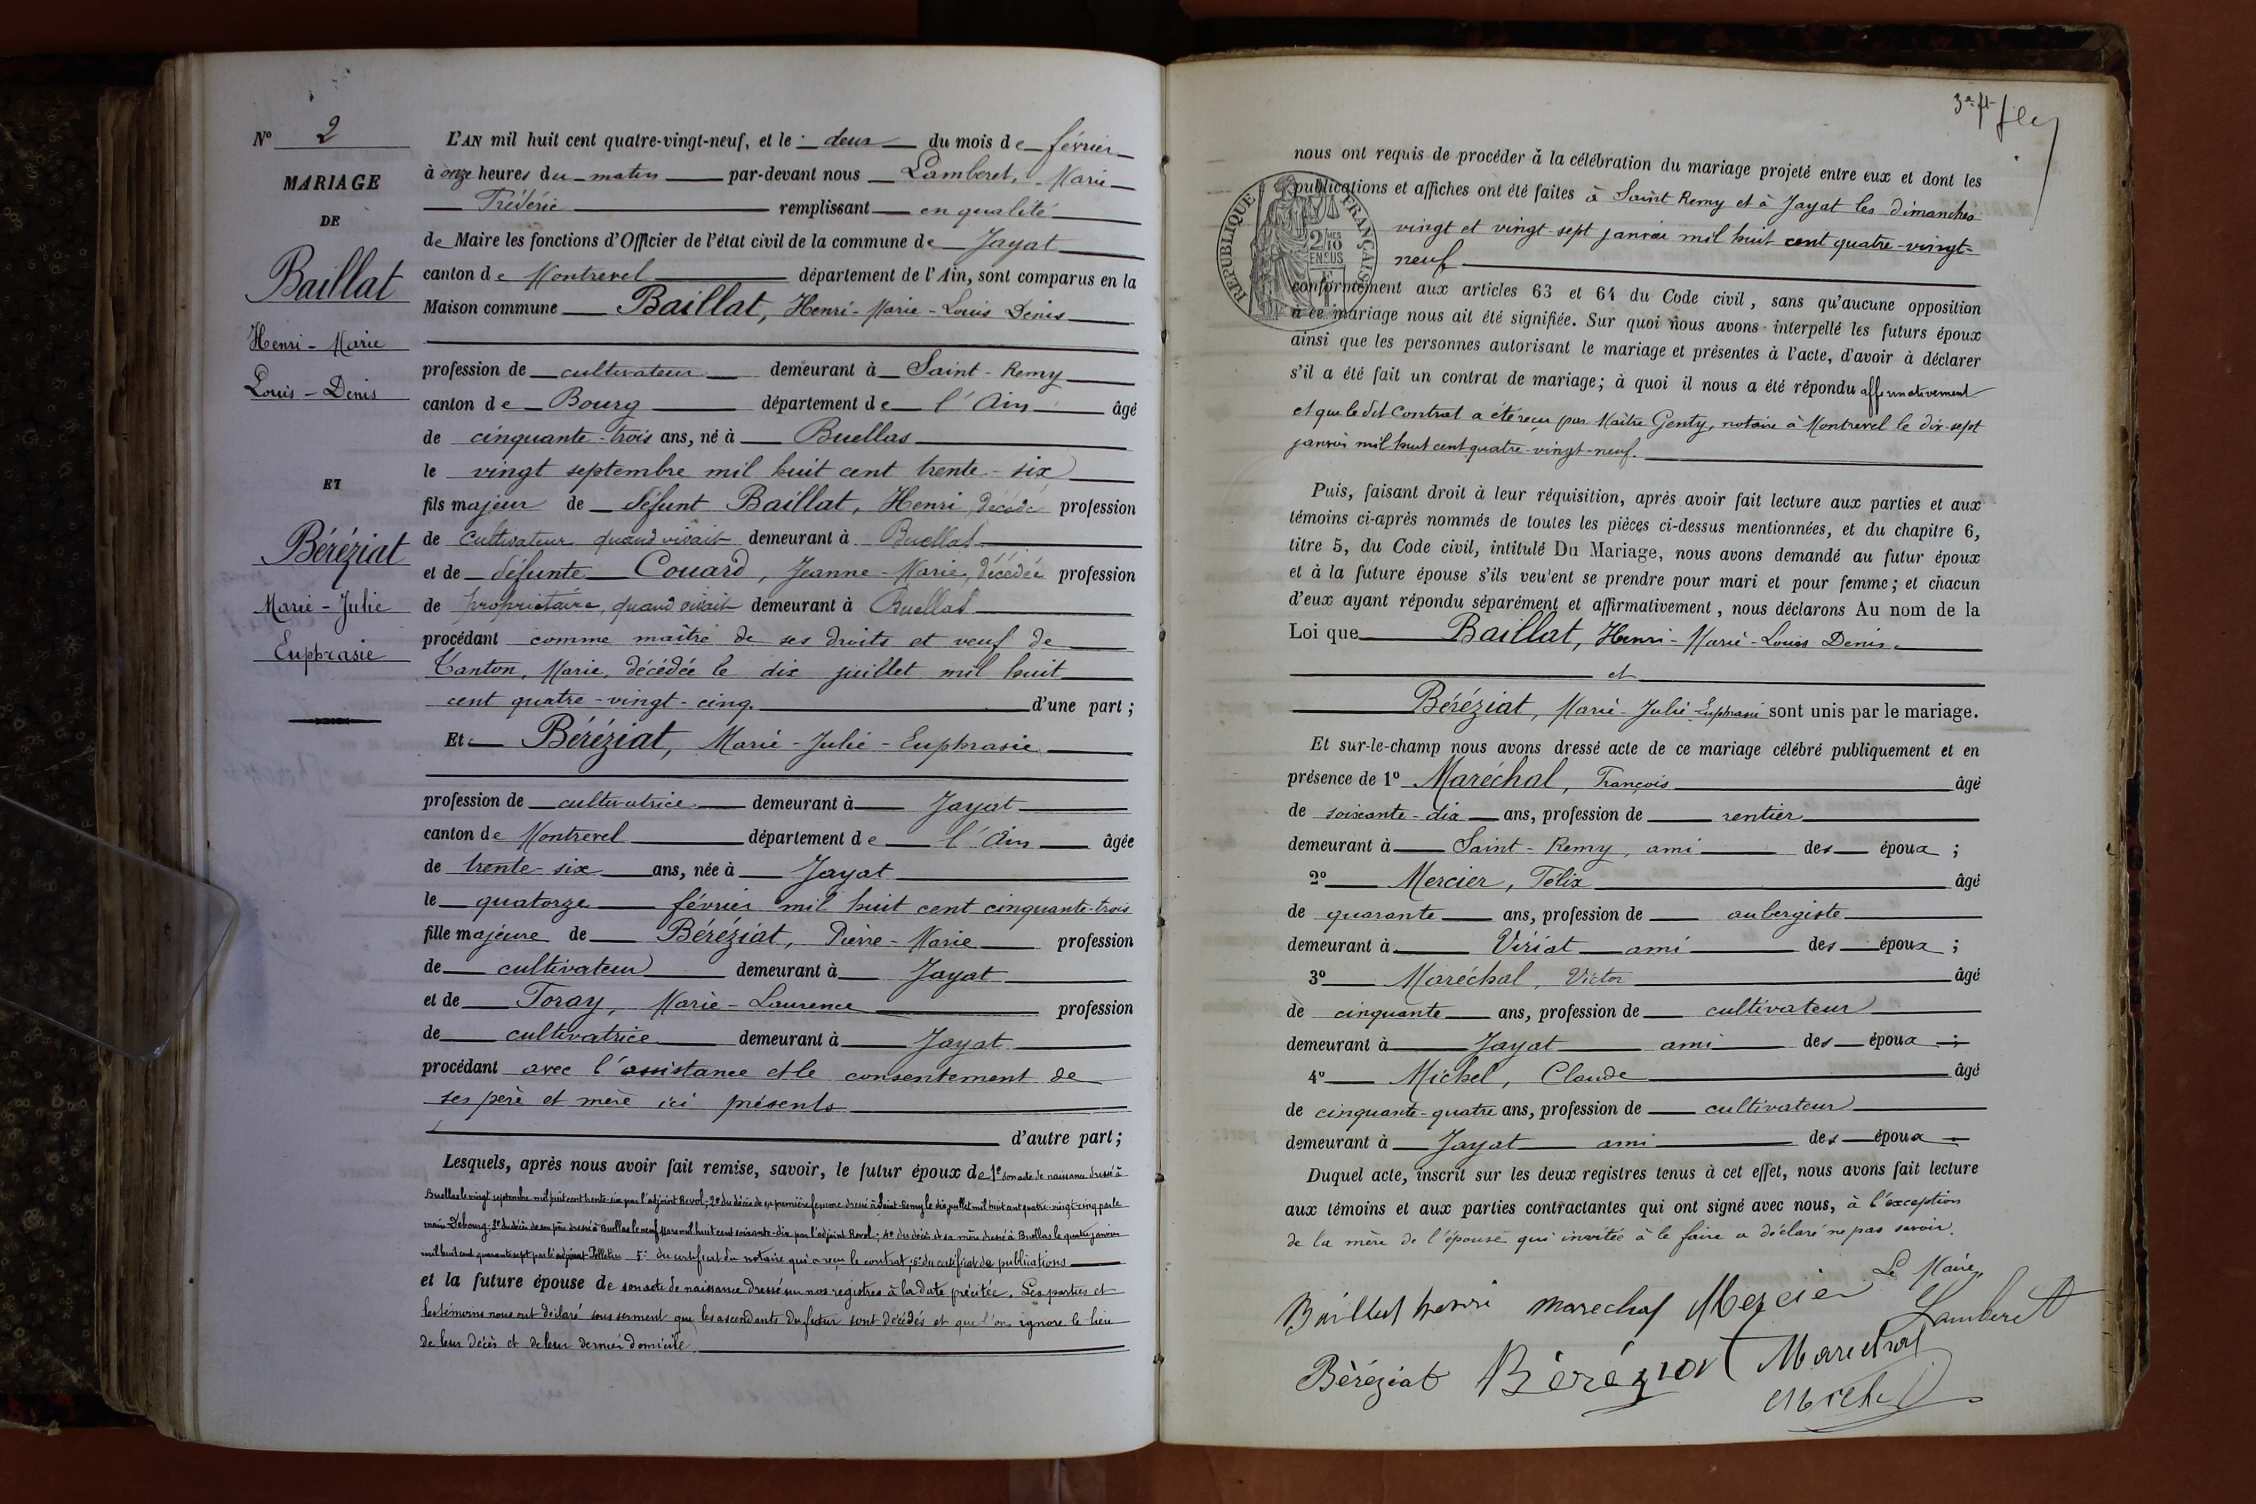 Nº 2
MARIAGE
DE
Baillat
Henri - Marie
Louis - Denis
ET
Béréziat
Marie - Julie
Euphrasie
L'AN mil huit cent quatre-vingt-neuf, et le deux du mois de février
à onze heures du matin par-devant nous Lamberet, Marie
Frédéric remplissant en qualité
de Maire les fonctions d'Officier de l'état civil de la commune de Jayat
canton de Montrevel département de l'Ain, sont comparus en la
Maison commune Baillat, Henri - Marie - Louis Denis
profession de cultivateur demeurant à Saint - Remy
canton de Bourg département de l'Ain âgé
de cinquante-trois ans, né à Buellas
le vingt septembre mil huit cent trente-six
fils majeur de défunt Baillat, Henri, décédé profession
de cultivateur quand vivait demeurant à Buellas
et de défunte Couard, Jeanne-Marie, décédée profession
de propriétaire, quand vivait demeurant à Buellas
procédant comme maître de ses droits et veuf de
Canton, Marie, décédée le dix juillet mil huit
cent quatre-vingt-cinq. d'une part ;
Et Béréziat, Marie - Julie - Euphrasie
profession de cultivatrice demeurant à Jayat
canton de Montrevel département de l'Ain âgée
de trente-six ans, née à Jayat
le quatorze février mil huit cent cinquante-trois
fille majeure de Béréziat, Pierre-Marie profession
de cultivateur demeurant à Jayat
et de Foray, Marie-Laurence profession
de cultivatrice demeurant à Jayat
procédant avec l'assistance et le consentement de
ses père et mère ici présents
d'autre part ;
Lesquels, après nous avoir fait remise, savoir, le futur époux de 1º son acte de naissance dressé à
Buellas le vingt septembre mil huit cent trente-six par l'adjoint Revol; 2º du décès de sa première femme dressé à Saint-Remy le dix juillet mil huit cent quatre-vingt-cinq par le
maire Debourg; 3º du décès de son père dressé à Buellas le neuf mars mil huit cent soixante-dix par l'adjoint Revol; 4º du décès de sa mère dressé à Buellas le quatre janvier
mil huit cent quarante sept par l'adjoint 5º du certificat du notaire qui a reçu le contrat; 6º du certificat de publications
et la future épouse de son acte de naissance dressé sur nos registres à la date précitée. Les parties et
les témoins nous ont déclaré sous serment que les ascendants du futur sont décédés et que l'on ignore le lieu
de leur décès et de leur dernier domicile.
nous ont requis de procéder à la célébration du mariage projeté entre eux et dont les
publications et affiches ont été faites à Saint Remy et à Jayat les dimanches
vingt et vingt-sept janvier mil huit cent quatre-vingt-
neuf
RÉPUBLIQUE FRANÇAISE
2 MES 10
EN SUS
conformément aux articles 63 et 64 du Code civil, sans qu'aucune opposition
à ce mariage nous ait été signifiée. Sur quoi nous avons interpellé les futurs époux
ainsi que les personnes autorisant le mariage et présentes à l'acte, d'avoir à déclarer
s'il a été fait un contrat de mariage; à quoi il nous a été répondu affirmativement
et que le dit contrat a été reçu par Maître Genty, notaire à Montrevel le dix-sept
janvier mil huit cent quatre-vingt-neuf.
Puis, faisant droit à leur réquisition, après avoir fait lecture aux parties et aux
témoins ci-après nommés de toutes les pièces ci-dessus mentionnées, et du chapitre 6,
titre 5, du Code civil, intitulé Du Mariage, nous avons demandé au futur époux
et à la future épouse s'ils veulent se prendre pour mari et pour femme; et chacun
d'eux ayant répondu séparément et affirmativement, nous déclarons Au nom de la
Loi que Baillat, Henri - Marie - Louis Denis
et
Béréziat, Marie - Julie Euphrasie sont unis par le mariage.
Et sur-le-champ nous avons dressé acte de ce mariage célébré publiquement et en
présence de 1º Maréchal, François âgé
de soixante-dix ans, profession de rentier
demeurant à Saint-Remy, ami des époux ;
2º Mercier, Félix âgé
de quarante ans, profession de aubergiste
demeurant à Viriat ami des époux ;
3º Maréchal, Victor âgé
de cinquante ans, profession de cultivateur
demeurant à Jayat ami des époux ;
4º Michel, Claude âgé
de cinquante-quatre ans, profession de cultivateur
demeurant à Jayat ami des époux
Duquel acte, inscrit sur les deux registres tenus à cet effet, nous avons fait lecture
aux témoins et aux parties contractantes qui ont signé avec nous, à l'exception
de la mère de l'épouse qui invitée à le faire a déclaré ne pas savoir.
Le Maire,
Baillat henri marechal Mercier Lamberet
Béréziat Béréziat Marechal
Michel